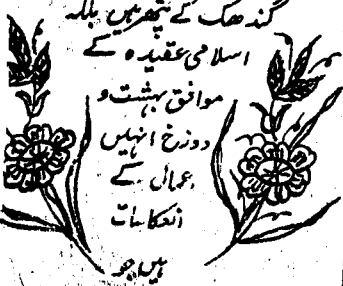 گندھک کے پتھر ہیں بلکہ
اسلامی عقیدہ کے
موافق بہشت و
دوزخ انہیں
اعمال کے
انعکاسات
ہیں جو